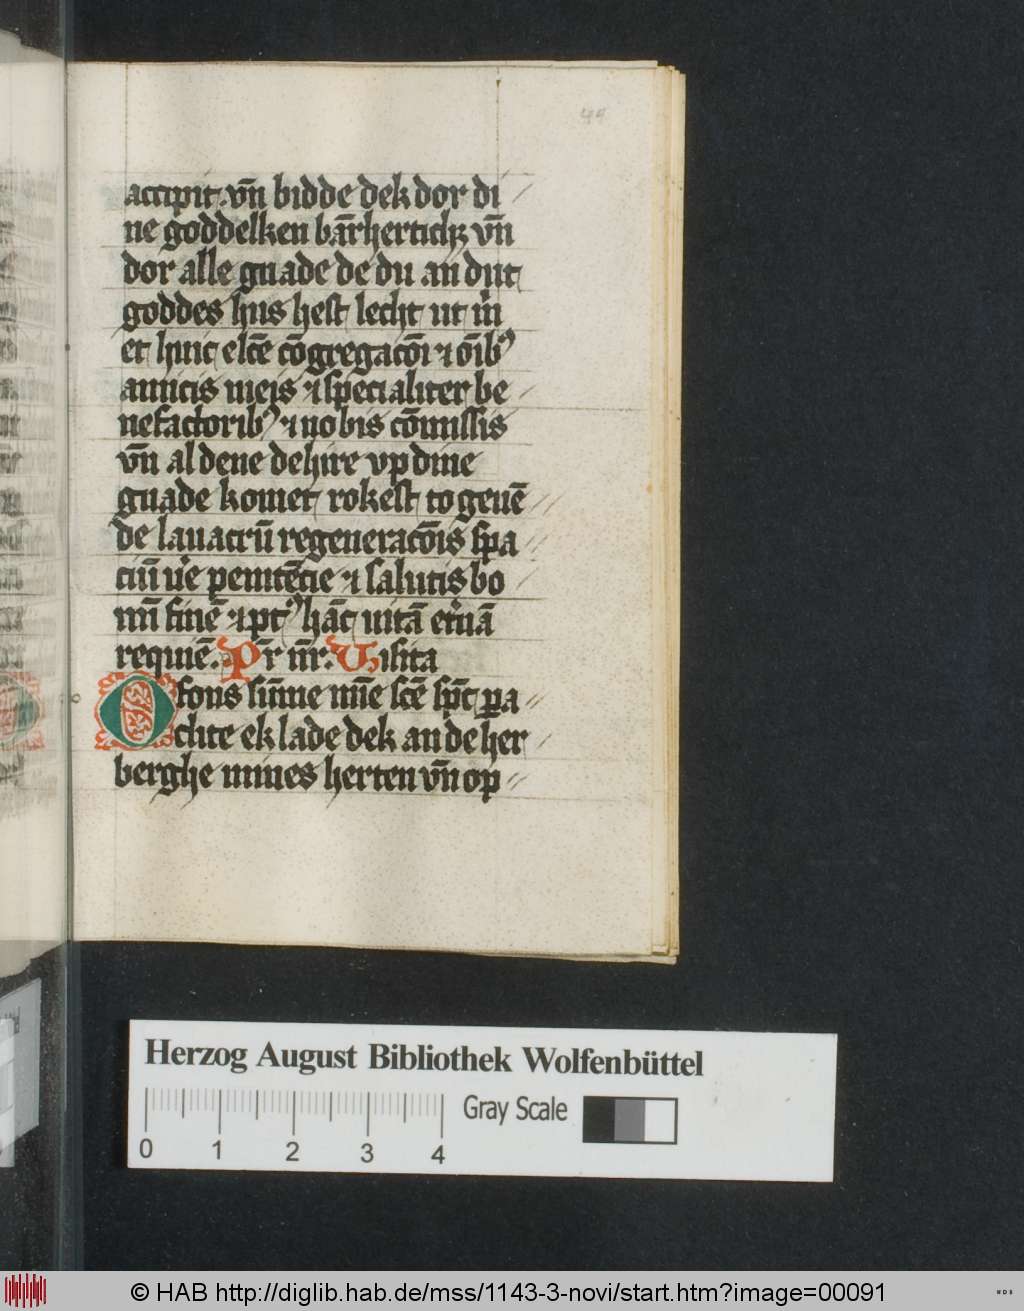 44
accipit. vn̄ bidde dek dor di
ne goddelken bār hertichꝫ vn̄
dor alle gnade de du an dyt
goddes hus hest lecht ut m̄
et huic elcē cōgregacōi ⁊ oīb⁹
amicis meis ⁊ specialiter be
nefactorib⁹ ⁊ nobis cōmissis
vn̄ al dene de hire vp dine
gnade komet rokest to geuē
de lauacrū regeneracōis spa
ciū v̓e penitēcie ⁊ salutis bo
nū finē ⁊ pt⁹ hāc uitā et̓nā
requiē. Pr̄ nr̄. Visita
O fons sūme mīe scē spc̄ ꝑa
clite ek lade dek an de her
berghe mines herten vn̄ op
Herzog August Bibliothek Wolfenbüttel
0 1 2 3 4
Gray Scale
© HAB http://diglib.hab.de/mss/1143-3-novi/start.htm?image=00091